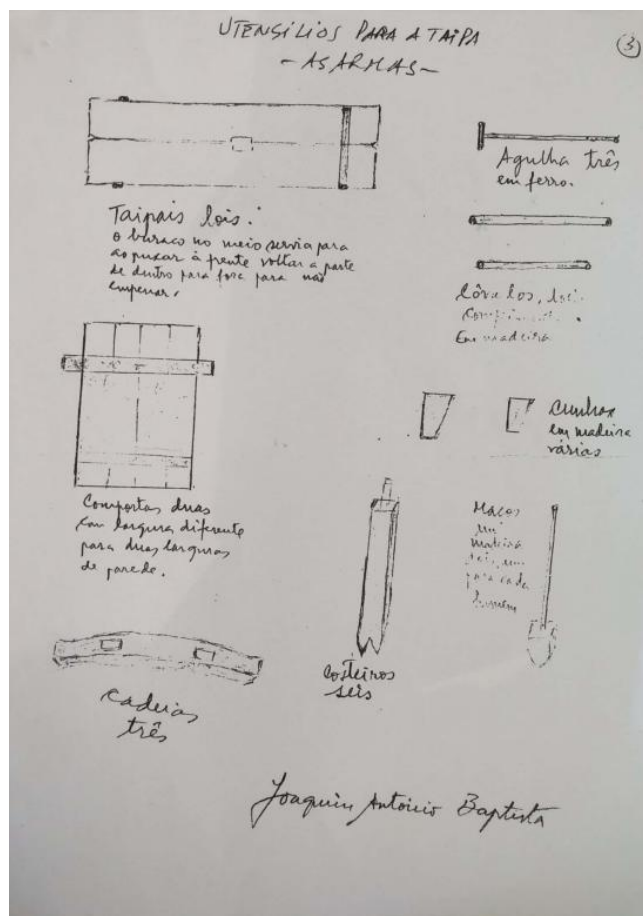 UTENSILIOS PARA A TAIPA
- AS ARMAS -
3
Taipais lois.
o buraco no meio servia para
ao puxar à frente voltar a parte
de dentro para fora para não
empenar.
Agulha três
em ferro.
Em madeira
Cunhas
em madeira
várias
Comportas duas
com largura diferente
para duas larguras
de parede.
Maços
em
madeira
um
para cada
homem
Costeiros
seis
cadeias
três
Joaquim António Baptista